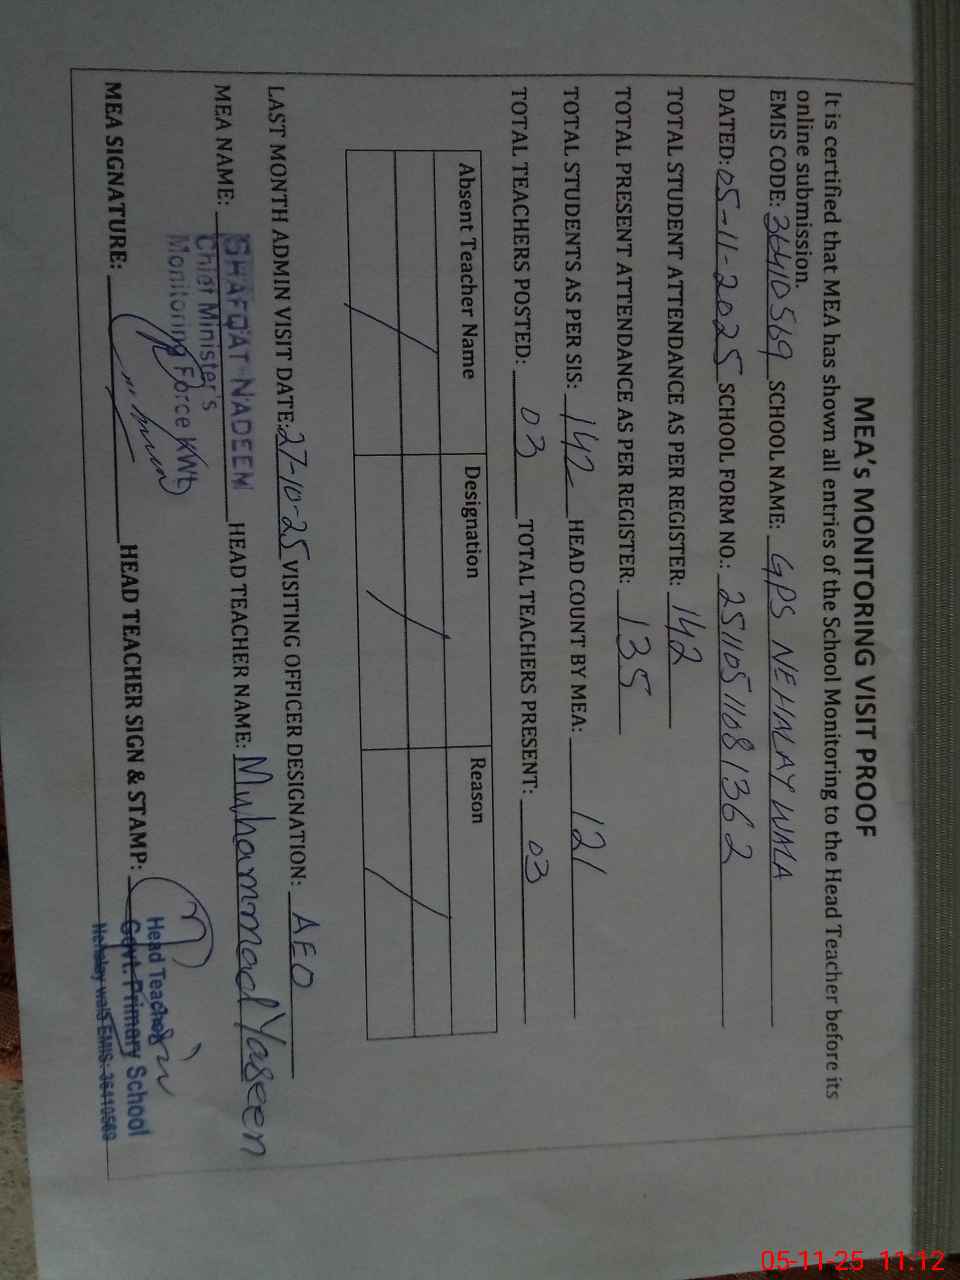 MEA's MONITORING VISIT PROOF
It is certified that MEA has shown all entries of the School Monitoring to the Head Teacher before its
online submission.
EMIS CODE: 36410569 SCHOOL NAME: GPS NEHALAY WALA
DATED: 05-11-2025 SCHOOL FORM NO.: 25110511081362
TOTAL STUDENT ATTENDANCE AS PER REGISTER: 142
TOTAL PRESENT ATTENDANCE AS PER REGISTER: 135
TOTAL STUDENTS AS PER SIS: 142 HEAD COUNT BY MEA: 121
TOTAL TEACHERS POSTED: 03 TOTAL TEACHERS PRESENT: 03
Absent Teacher Name Designation Reason
/ / /
LAST MONTH ADMIN VISIT DATE: 27-10-25 VISITING OFFICER DESIGNATION: AEO
MEA NAME: SHAFQAT NADEEM HEAD TEACHER NAME: Muhammad Yaseen
Chief Minister's
Monitoring Force KWL
MEA SIGNATURE: HEAD TEACHER SIGN & STAMP:
Head Teacher
Govt. Primary School
Nehalay wala EMIS: 36410569
05-11-25 11:12